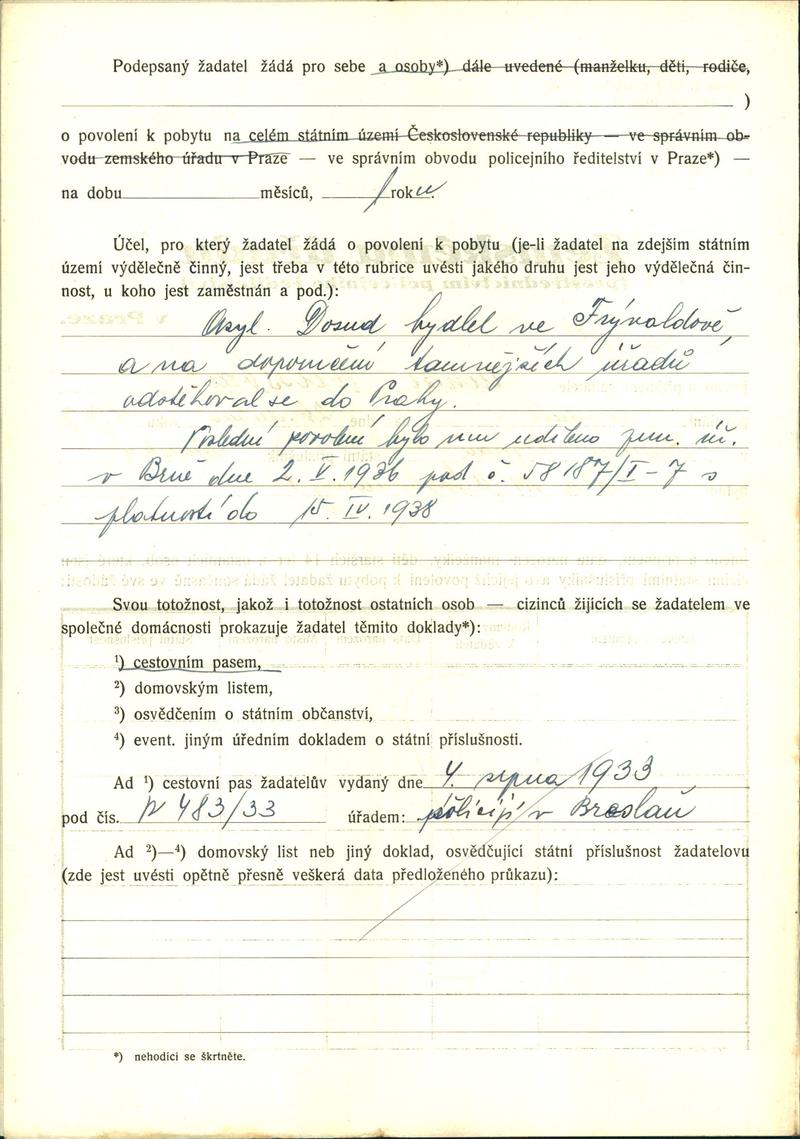 Podepsaný žadatel žádá pro sebe a osoby*) dále uvedené (manželku, děti, rodiče,
)
o povolení k pobytu na celém státním území Československé republiky — ve správním ob-
vodu zemského úřadu v Praze — ve správním obvodu policejního ředitelství v Praze*) —
na dobu měsíců, 1 roku.
Účel, pro který žadatel žádá o povolení k pobytu (je-li žadatel na zdejším státním
území výdělečně činný, jest třeba v této rubrice uvésti jakého druhu jest jeho výdělečná čin-
nost, u koho jest zaměstnán a pod.):
Asyl. Dosud bydlel ve Frývaldově,
a na doporučení tamnějších úřadů
odstěhoval se do Prahy.
Poslední povolení bylo mu uděleno zem. úř.
v Brně dne 2. V. 1936 pod č. 58187/I-7 s
platností do 15. IV. 1938
Svou totožnost, jakož i totožnost ostatních osob — cizinců žijících se žadatelem ve
společné domácnosti prokazuje žadatel těmito doklady*):
¹) cestovním pasem,
²) domovským listem,
³) osvědčením o státním občanství,
⁴) event. jiným úředním dokladem o státní příslušnosti.
Ad ¹) cestovní pas žadatelův vydaný dne 4. srpna 1933
pod čís. 483/33 úřadem: policií v Breslau
Ad ²)—⁴) domovský list neb jiný doklad, osvědčující státní příslušnost žadatelovu
(zde jest uvésti opětně přesně veškerá data předloženého průkazu):
*) nehodící se škrtněte.